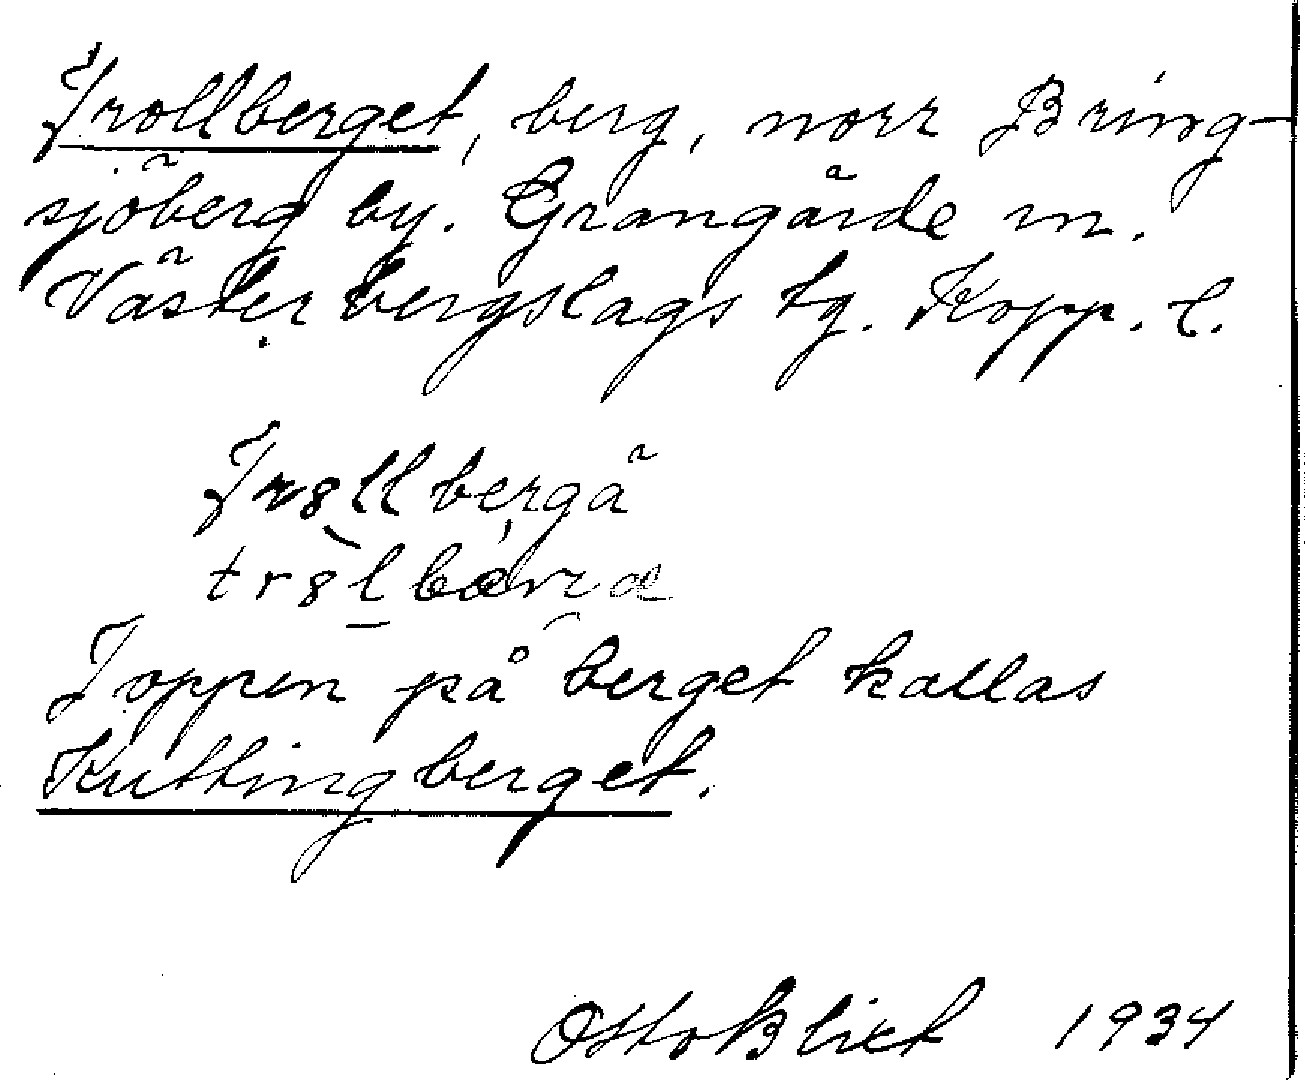 Trollberget, berg, norr Bring-
sjöberg by. Grangärde sn.
Västerbergslags tg. Kopp. l.
Tr8llbergä
tr8lbærræ
Toppen på berget kallas
Kuttingberget.
Otto Blixt 1934